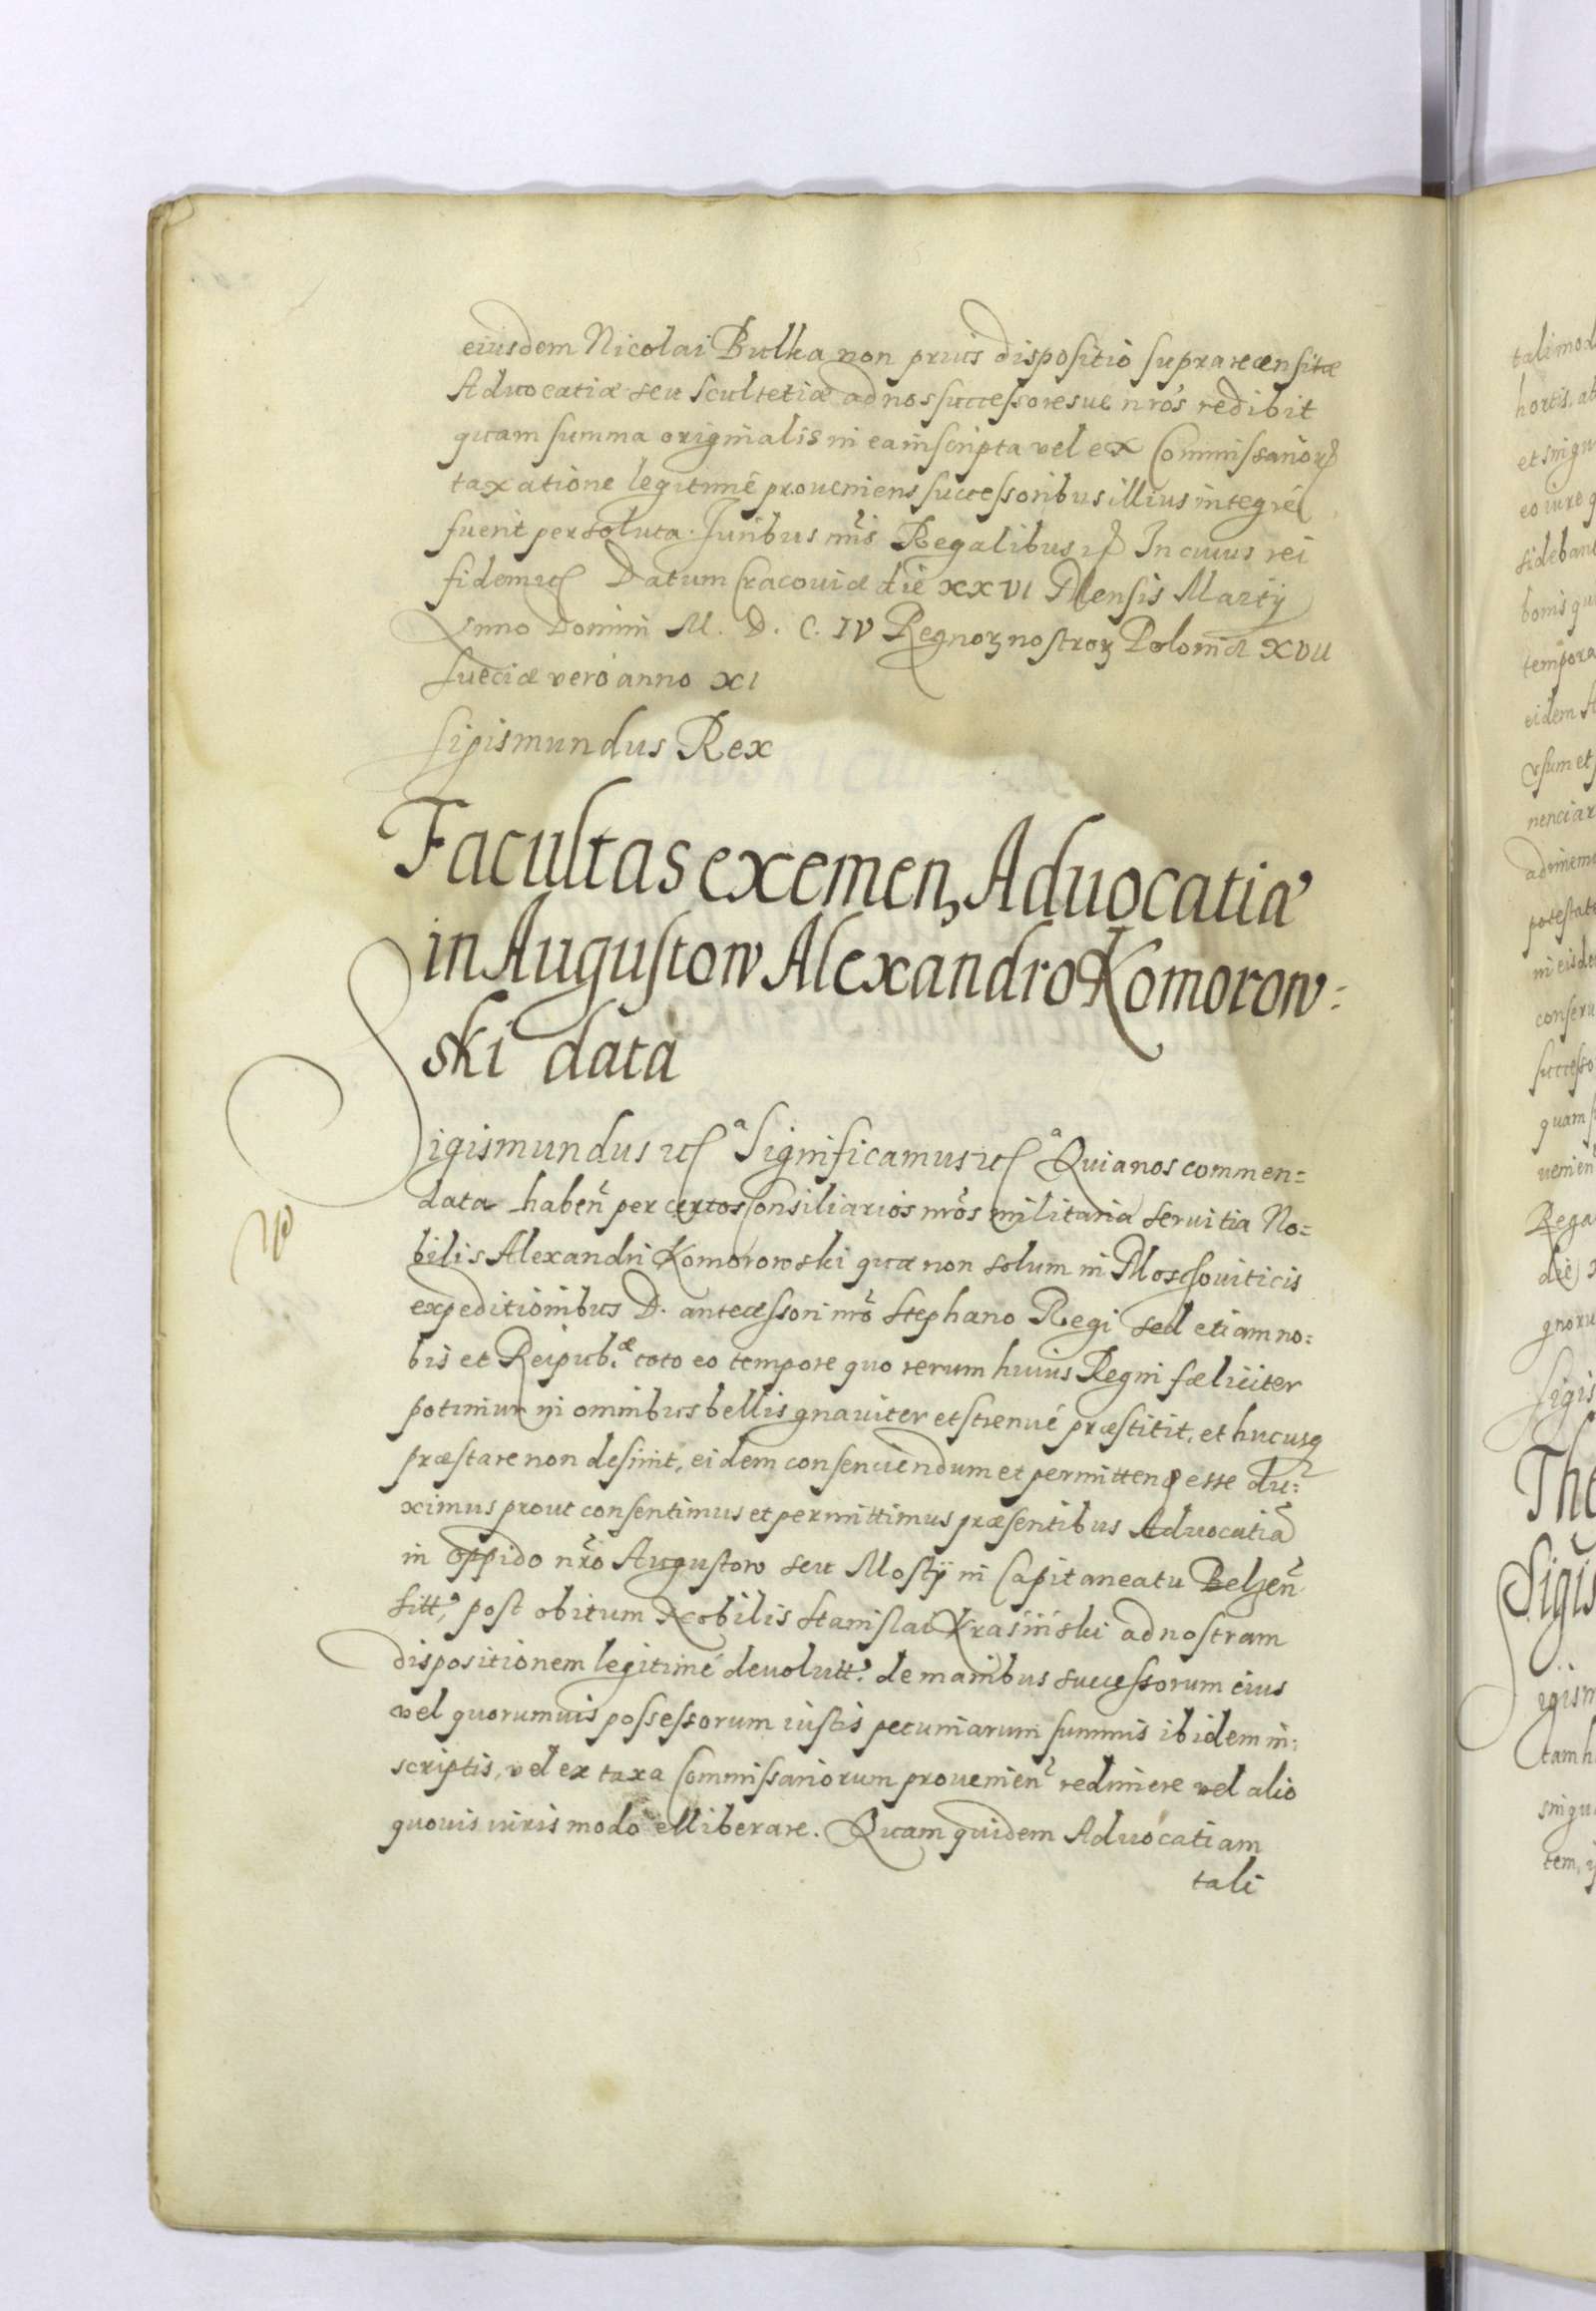 eiusdem Nicolai Bulka non prius dispositio supra recensitæ
Aduocatiæ seu Scultetiæ ad nos successoresue nr̃os redibit
quam summa originalis in ea inscripta vel ex Commissarioꝝ
taxatione legitimè proueniens successoribus illius integrè
fuerit persoluta. Iuribus nr̃is Regalibus ꝛc̃ In cuius rei
fidem ꝛc̃ Datum Cracouiæ die XXVI Mensis Martÿ
Anno Domini M. D. C. IV Regnoꝝ nostroꝝ Poloniæ XVII
Sueciæ verò anno XI
Sigismundus Rex
Facultas exemen, Aduocatiã
in Augustow Alexandro Komorow:
ski data
Sigismundus ꝛc̃ᵃ Significamus ꝛc̃ᵃ Quia nos commen=
data haben̄ per certos Consiliarios nr̃os militaria seruitia No=
bilis Alexandri Komorowski quæ non solum in Moschouiticis
expeditionibus D. antecessori nr̃o Stephano Regi sed etiam no:
bis et Reipub.æ toto eo tempore quo rerum huius Regni fæliciter
potimur in omnibus bellis gnauiter et strenuè præstitit, et hucusq
præstare non desinit, eidem consenciendum et permitten~ esse du:
ximus prout consentimus et permittimus præsentibus Aduocatiã
in oppido nr̃o Augustow seu Mosty in Capitaneatu Belzen̄
sitt, post obitum Nobilis Stanislai Krasiński ad nostram
dispositionem legitimè deuolutt. de manibus successorum eius
vel quorumuis possessorum iustis pecuniarum summis ibidem in:
scriptis, vel ex taxa Commissariorum prouenien̄ redimere vel alio
quouis iuris modo elliberare. Quam quidem Aduocatiam
tali